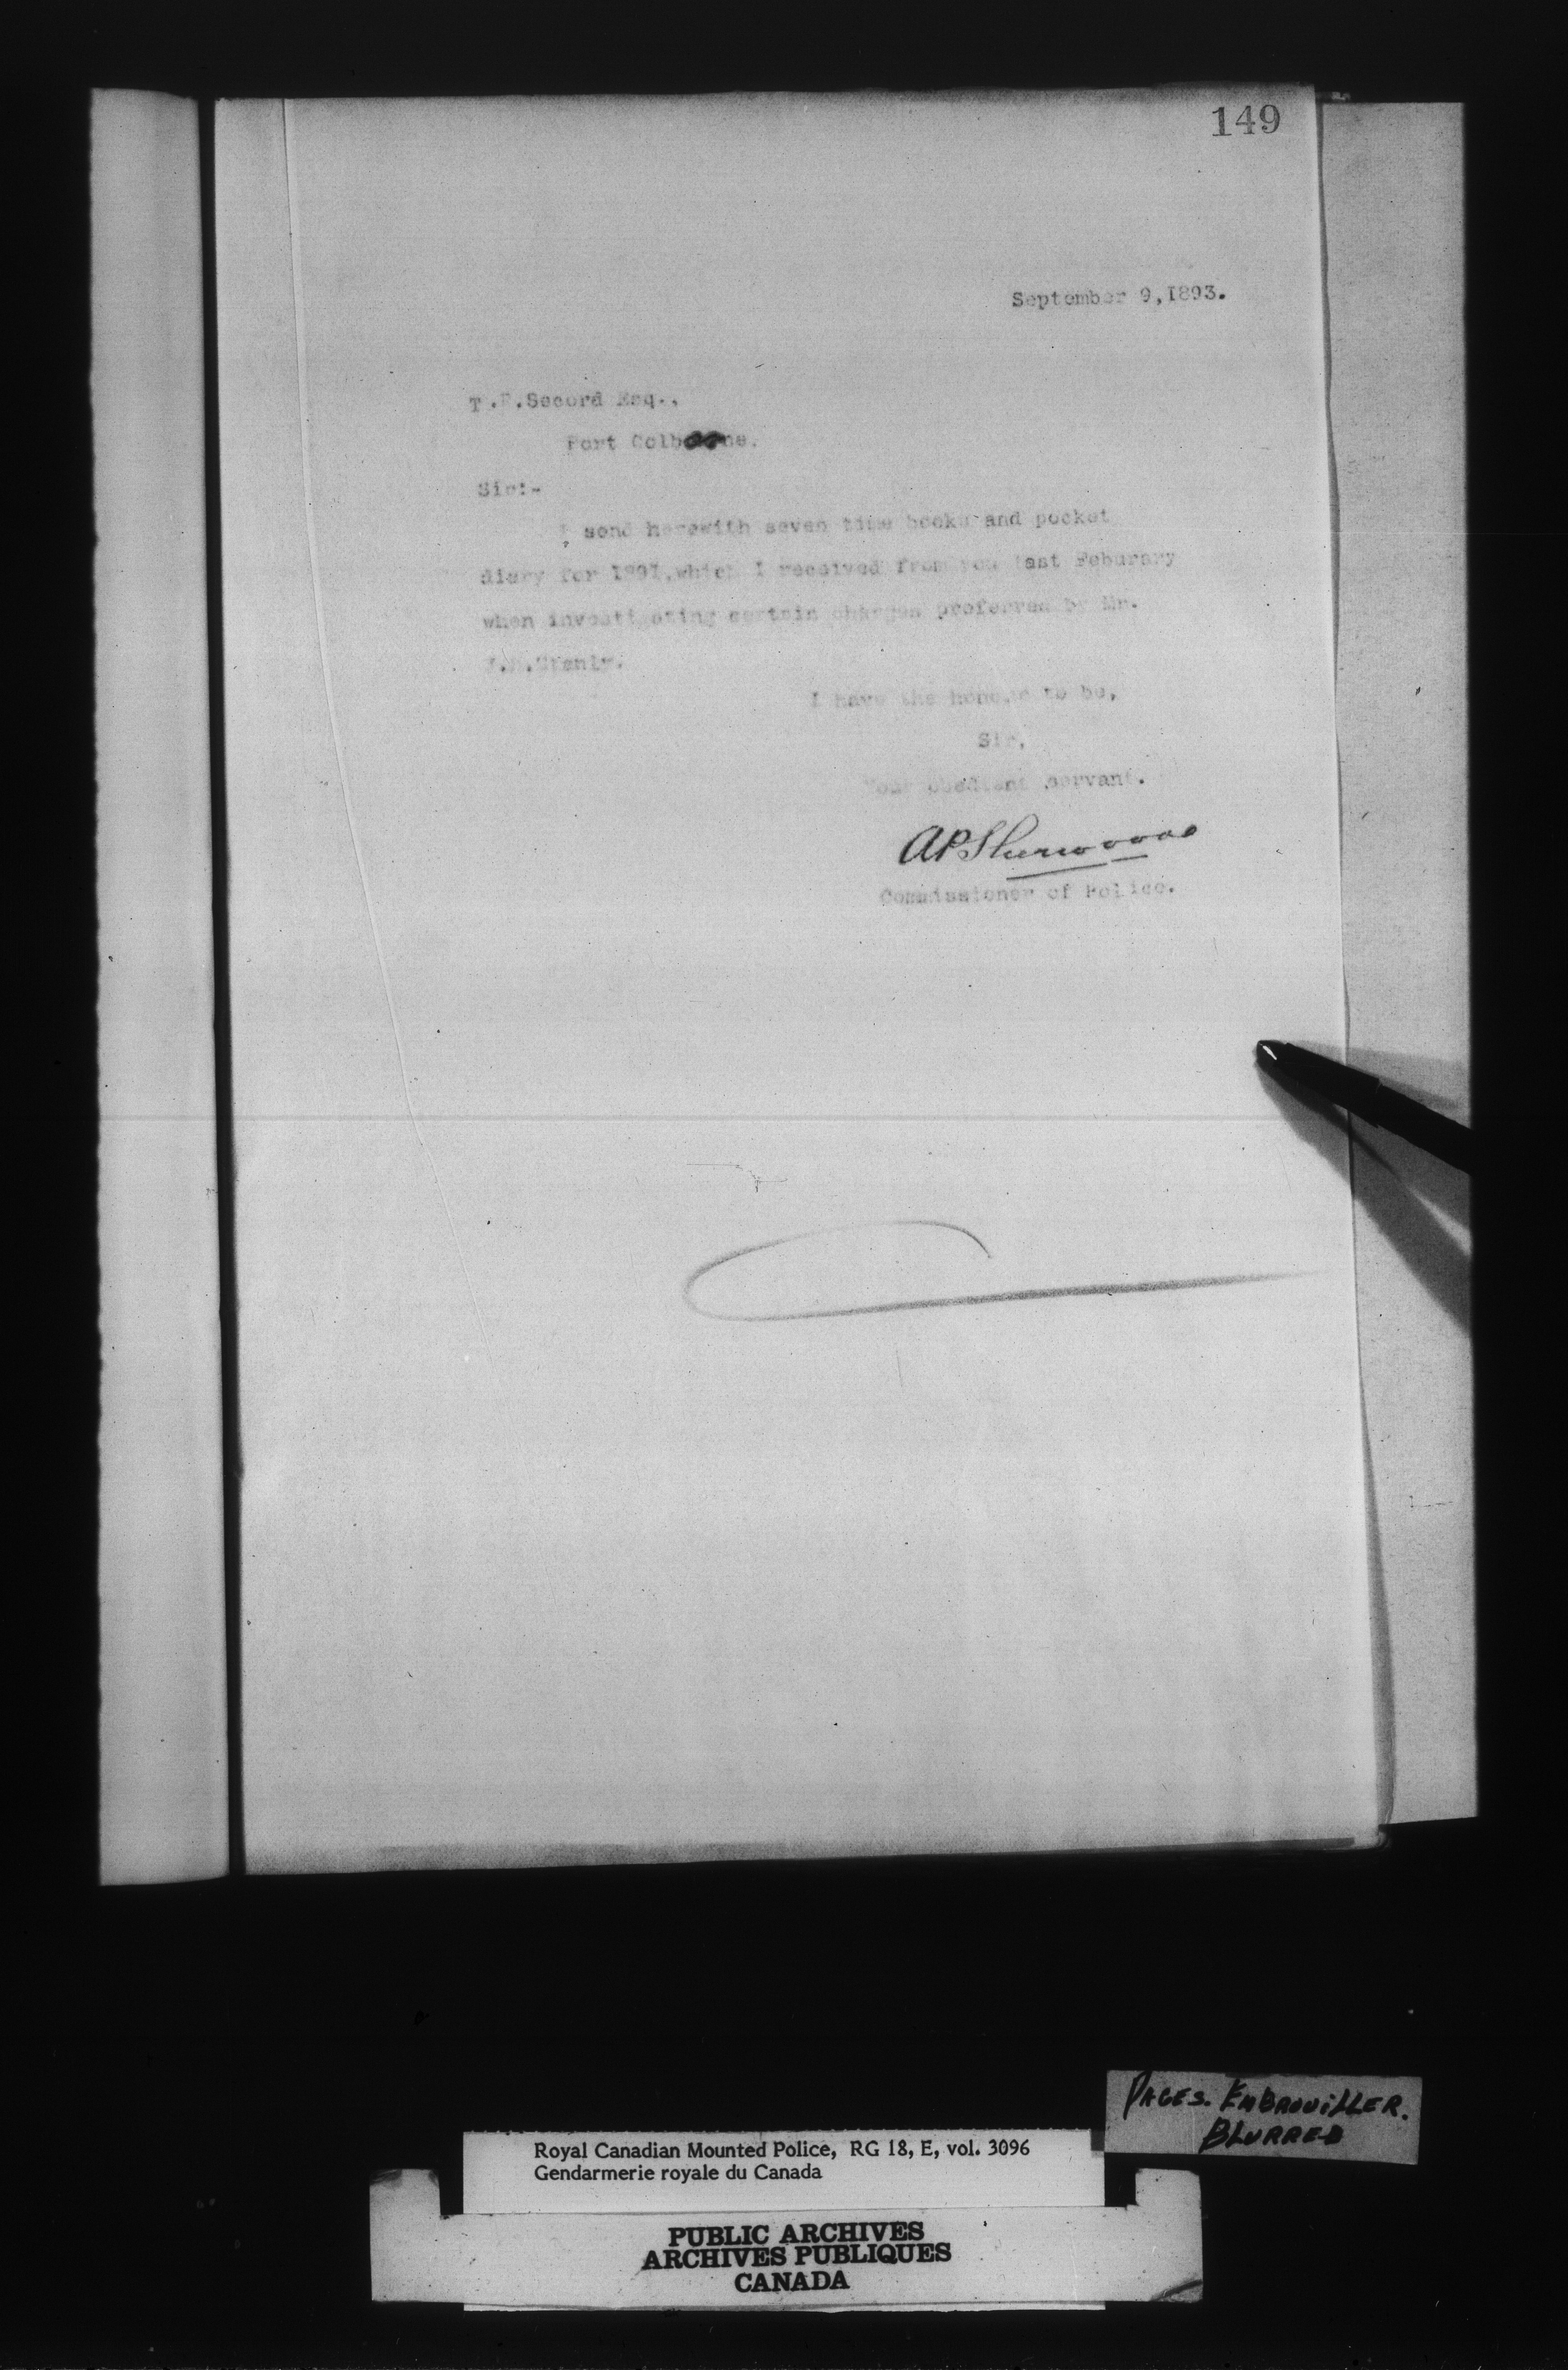 149
September 9,1893.
T.F.Secord Esq.,
Port Colborne.
Sir:-
I send herewith seven time books and pocket
diary for 1891,which I received from you last Feburary
when investigating certain charges proferred by Mr.
I have the honour to be,
Sir,
Your obedient servant.
APSherwood
Commissioner of Police.
PAGES. EMBROUILLER.
BLURRED
Royal Canadian Mounted Police, RG 18, E, vol. 3096
Gendarmerie royale du Canada
PUBLIC ARCHIVES
ARCHIVES PUBLIQUES
CANADA